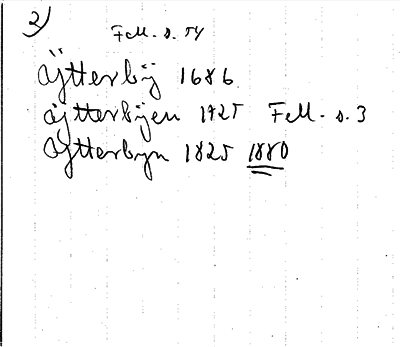 2)
Fell. s. 54
Ajtterbÿ 1686
Ajtterbÿen 1725 Fell. s. 3
Ajtterbyn 1825 1880